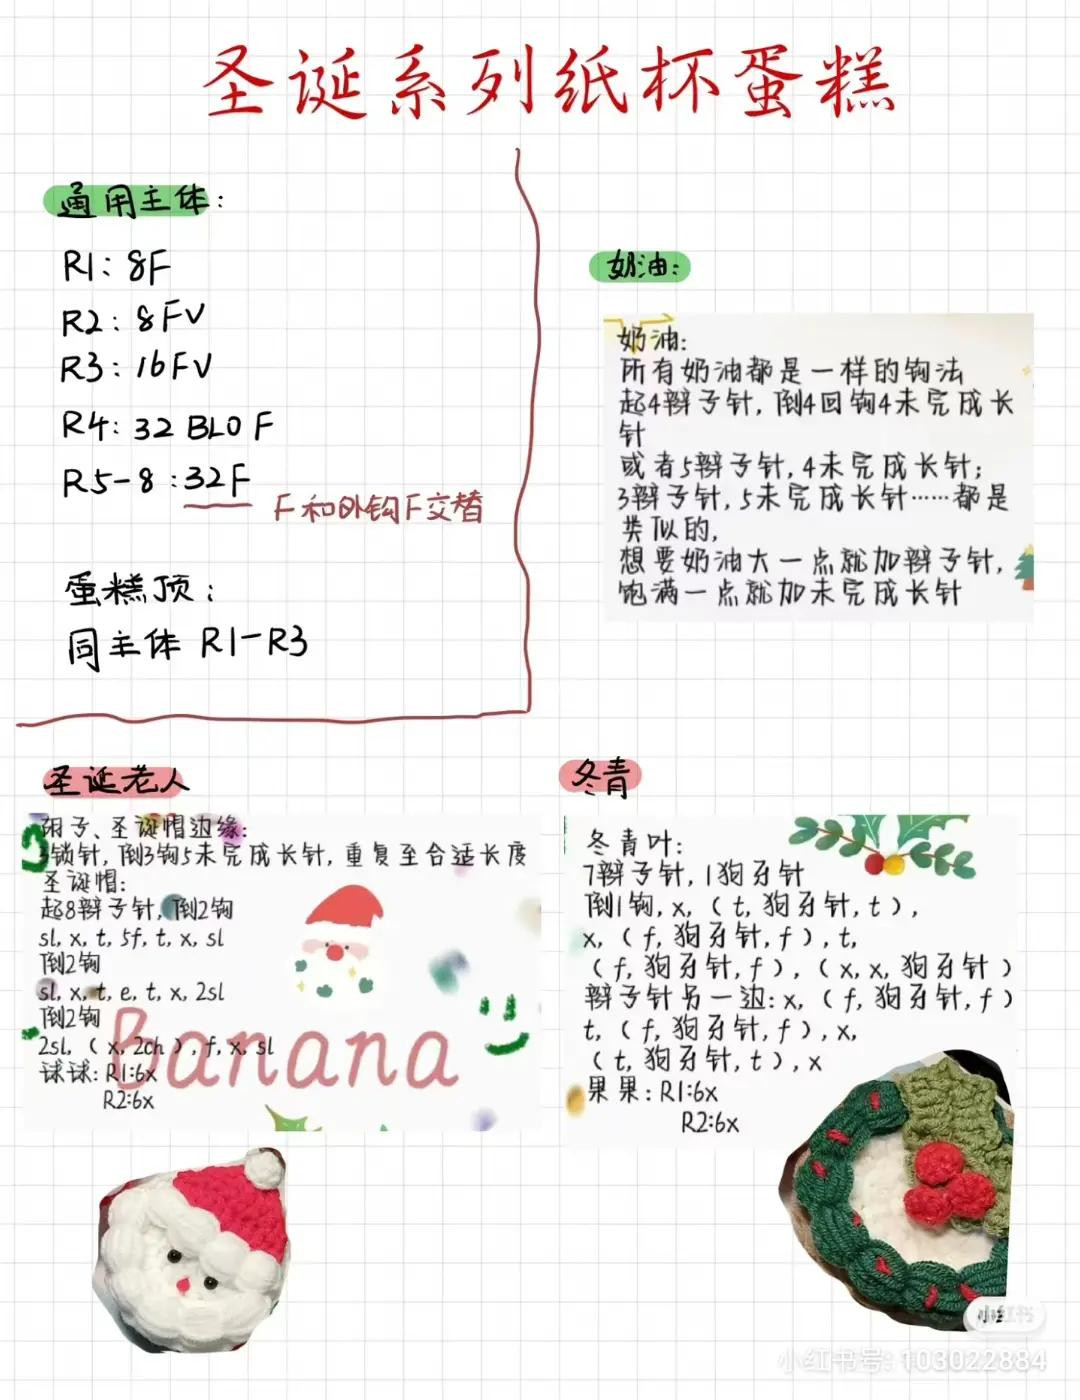 圣诞系列纸杯蛋糕
通用主体:
R1: 8F
R2: 8FV
R3: 16FV
R4: 32 BLO F
R5-8: 32F
F和外钩F交替
蛋糕顶:
同主体 R1-R3
奶油:
奶油:
所有奶油都是一样的钩法
起4辫子针, 倒4回钩4未完成长
针
或者5辫子针, 4未完成长针;
3辫子针, 5未完成长针……都是
类似的,
想要奶油大一点就加辫子针,
饱满一点就加未完成长针
圣诞老人
胡子、圣诞帽边缘:
3锁针, 倒3钩5未完成长针, 重复至合适长度
圣诞帽:
起8辫子针, 倒2钩
sl, x, t, 5f, t, x, sl
倒2钩
sl, x, t, e, t, x, 2sl
倒2钩
2sl, ( x, 2ch ), f, x, sl
球球: R1:6x
R2:6x
Banana
冬青
冬青叶:
7辫子针, 1狗牙针
倒1钩, x, ( t, 狗牙针, t ),
x, ( f, 狗牙针, f ), t,
( f, 狗牙针, f ), ( x, x, 狗牙针 )
辫子针另一边: x, ( f, 狗牙针, f )
t, ( f, 狗牙针, f ), x,
( t, 狗牙针, t ), x
果果: R1:6x
R2:6x
小红书
小红书号: 103022884